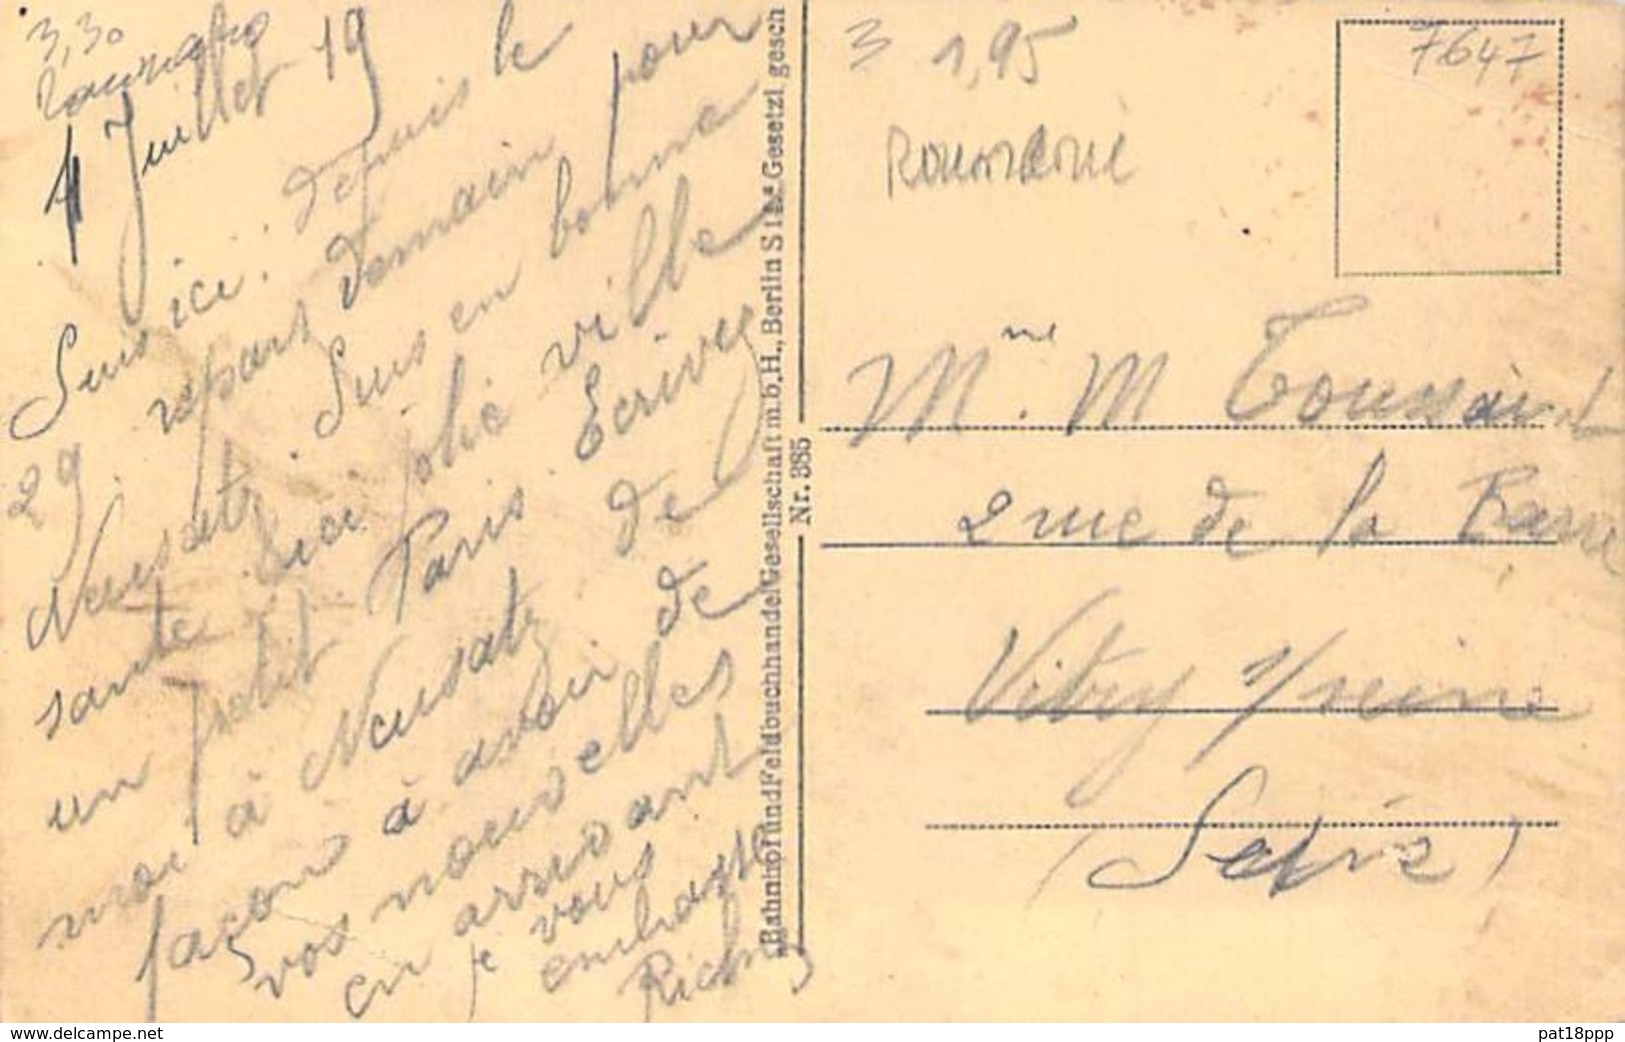 3,30
4 Juillet 19
Suis ici depuis le
29. repars demain pour
Neusatz. Suis en bonne
santé. Ici jolie ville
un petit Paris. Ecrivez
moi à Neusatz de
façon à avoir de
vos nouvelles
en arrivant
je vous
embrasse
„Bahnhof und Feldbuchhandel Gesellschaft m.b.H., Berlin S 14" Gesetzl. gesch
Nr. 385
3 1,95
ROUMANIE
7647
Mme. M Toussaint
2 rue de la Barre
Vitry s/seine
(Seine)
www.delcampe.net
pat18ppp